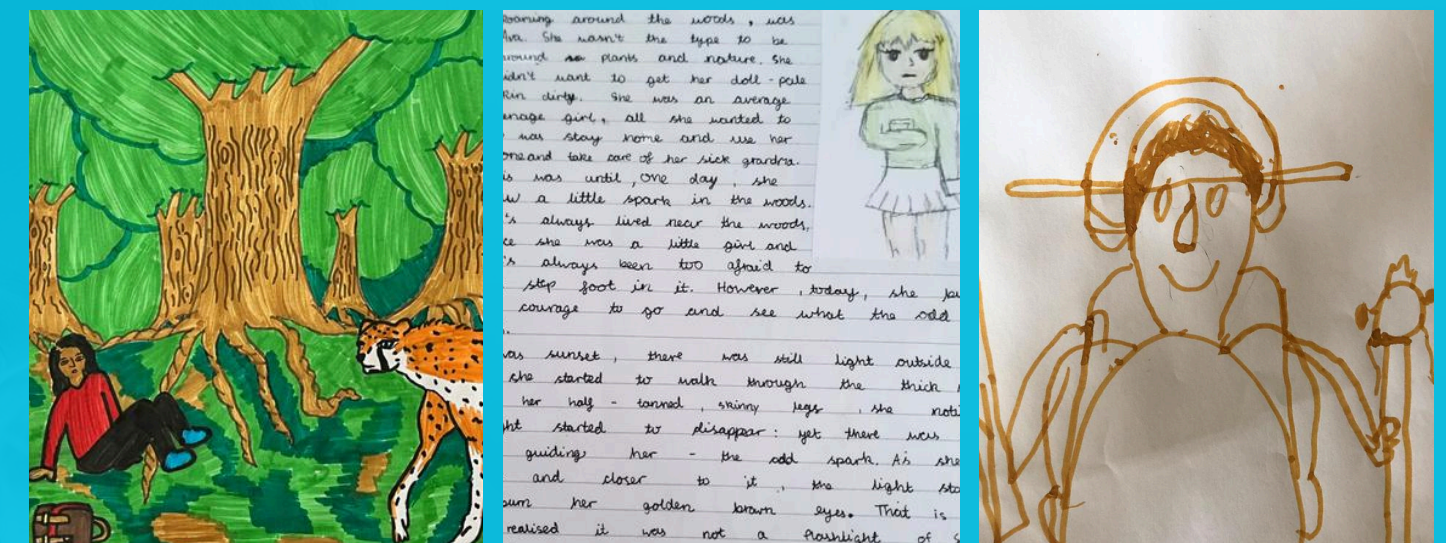 roaming around the woods, was
Ava. She wasn't the type to be
around plants and nature. She
didn't want to get her doll-pale
skin dirty. She was an average
teenage girl, all she wanted to
was stay home and use her
phone and take care of her sick grandma.
is was until, one day, she
w a little spark in the woods.
's always lived near the woods,
ce she was a little girl and
's always been too afraid to
step foot in it. However, today, she
courage to go and see what the odd
was sunset, there was still light outside
she started to walk through the thick
her half-tanned, skinny legs, she noti
ght started to disappear: yet there was
guiding her - the odd spark. As she
and closer to it, the light sta
burn her golden brown eyes. That is
realised it was not a flashlight of